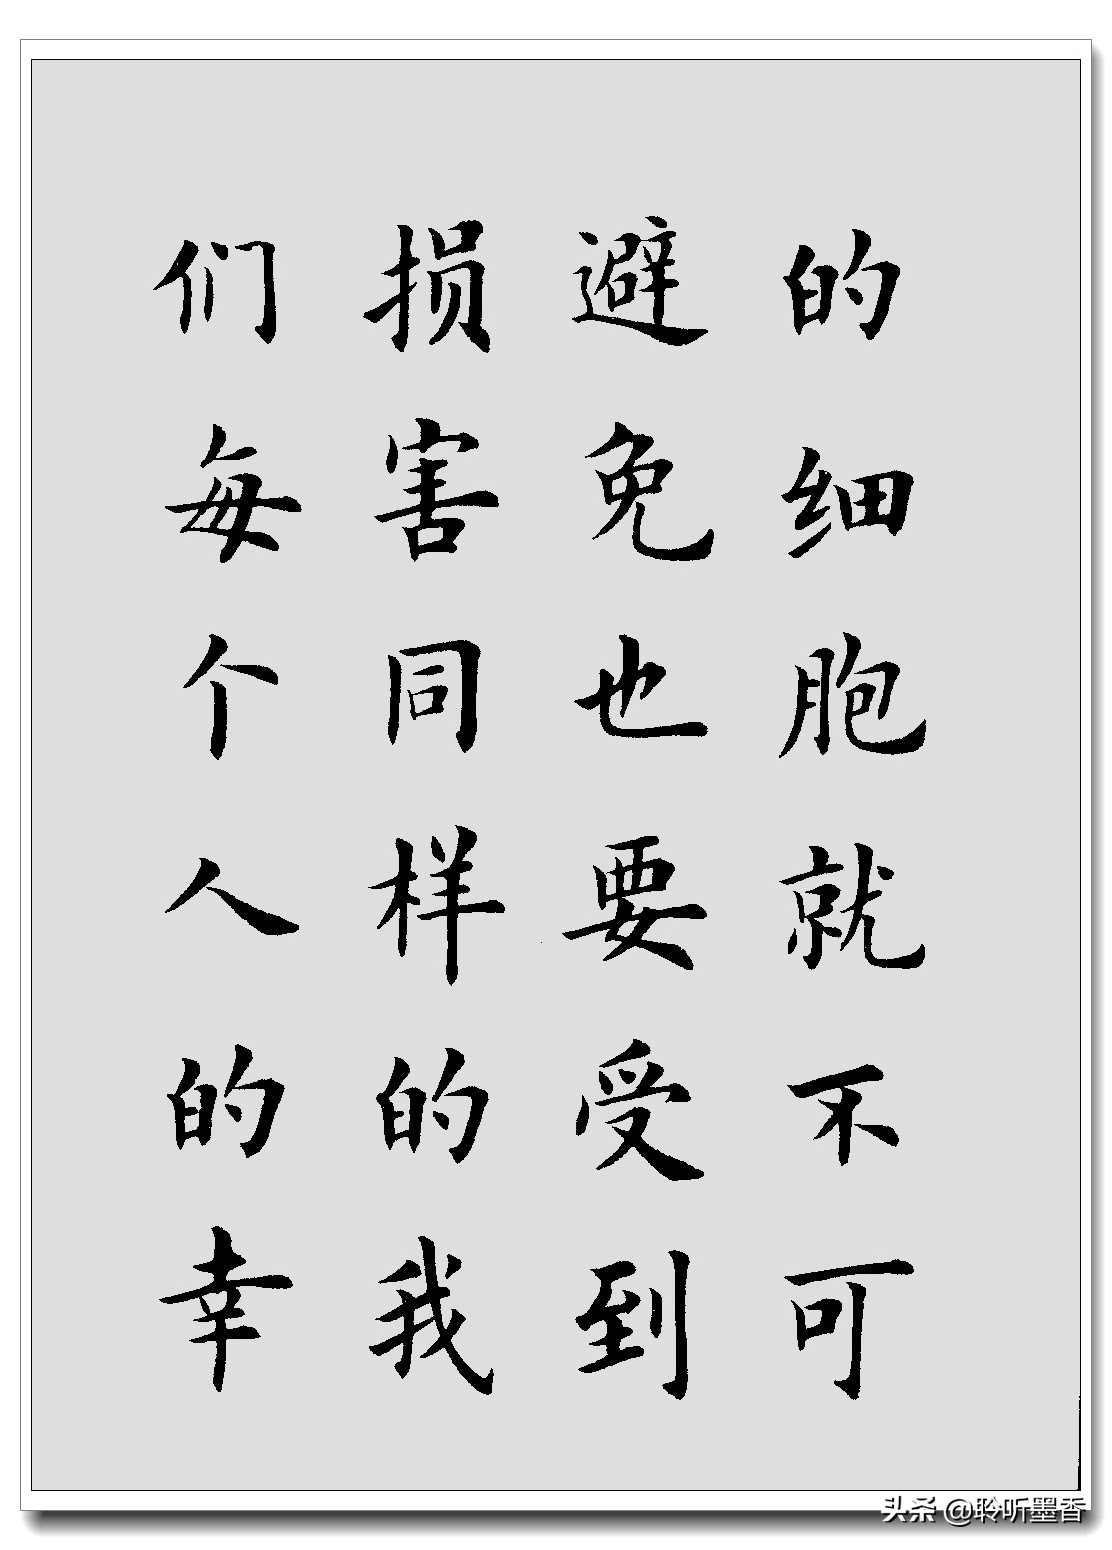 的细胞就不可
避免也要受到
损害同样的我
们每个人的幸
头条 @聆听墨香